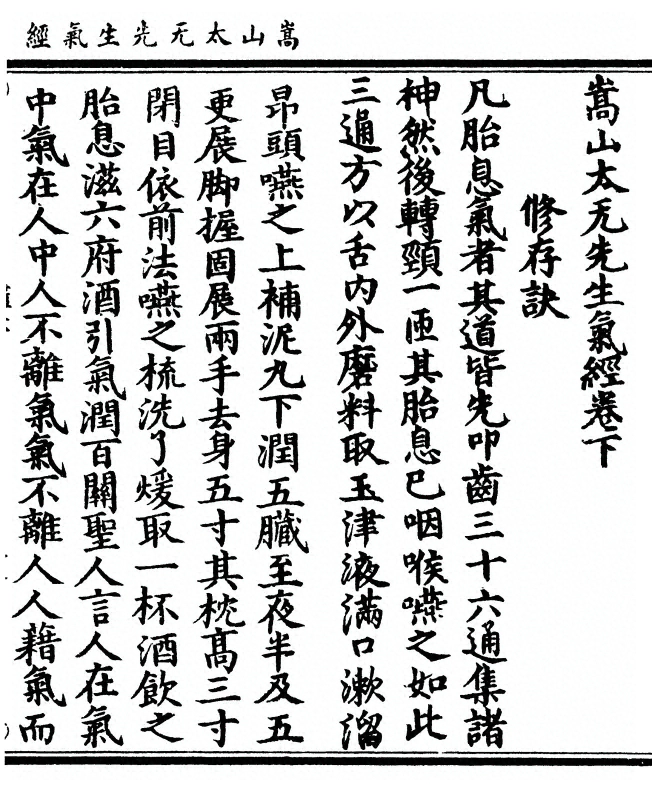 嵩山太无先生氣經
嵩山太无先生氣經卷下
修存訣
凡胎息氣者其道皆先叩齒三十六通集諸
神然後轉頸一匝其胎息已咽喉嚥之如此
三通方以舌內外磨料取玉津液滿口漱溜
昂頭嚥之上補泥丸下潤五臟至夜半及五
更展脚握固展兩手去身五寸其枕高三寸
閉目依前法嚥之梳洗了煖取一杯酒飲之
胎息滋六府酒引氣潤百關聖人言人在氣
中氣在人中人不離氣氣不離人人藉氣而